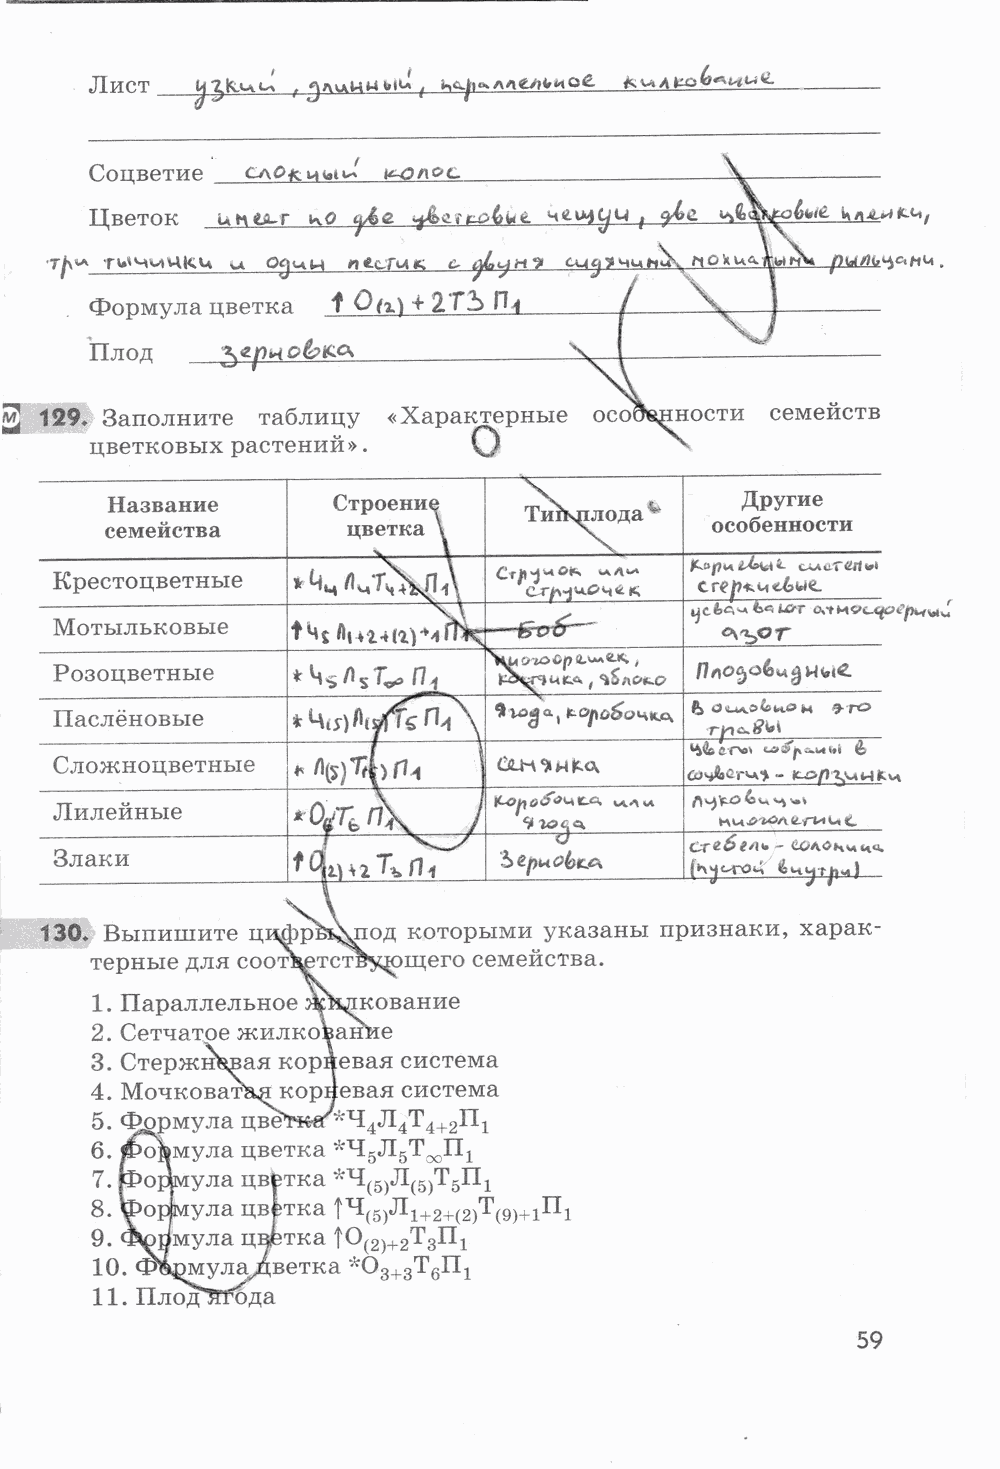 Лист узкий, длинный, параллельное жилкование
Соцветие сложный колос
Цветок имеет по две цветковые чешуи, две цветковые пленки,
три тычинки и один пестик с двумя сидячими мохнатыми рыльцами.
Формула цветка ↑O(2)+2T3П1
Плод зерновка
М 129. Заполните таблицу «Характерные особенности семейств
цветковых растений».
Название семейства Строение цветка Тип плода Другие особенности
Крестоцветные *Ч4Л4Т4+2П1 Стручок или стручочек Корневые системы стержневые
Мотыльковые ↑Ч5Л1+2+(2)+1П1 Боб усваивают атмосферный азот
Розоцветные *Ч5Л5Т∞П1 многоорешек, костянка, яблоко Плодовидные
Паслёновые *Ч(5)Л(5)Т5П1 Ягода, коробочка В основном это травы
Сложноцветные *Л(5)Т(5)П1 семянка цветы собраны в соцветия - корзинки
Лилейные *О6Т6П1 коробочка или ягода луковицы многолетние
Злаки ↑О(2)+2Т3П1 Зерновка стебель - соломина (пустой внутри)
130. Выпишите цифры, под которыми указаны признаки, харак-
терные для соответствующего семейства.
1. Параллельное жилкование
2. Сетчатое жилкование
3. Стержневая корневая система
4. Мочковатая корневая система
5. Формула цветка *Ч4Л4Т4+2П1
6. Формула цветка *Ч5Л5Т∞П1
7. Формула цветка *Ч(5)Л(5)Т5П1
8. Формула цветка ↑Ч(5)Л1+2+(2)Т(9)+1П1
9. Формула цветка ↑О(2)+2Т3П1
10. Формула цветка *О3+3Т6П1
11. Плод ягода
59